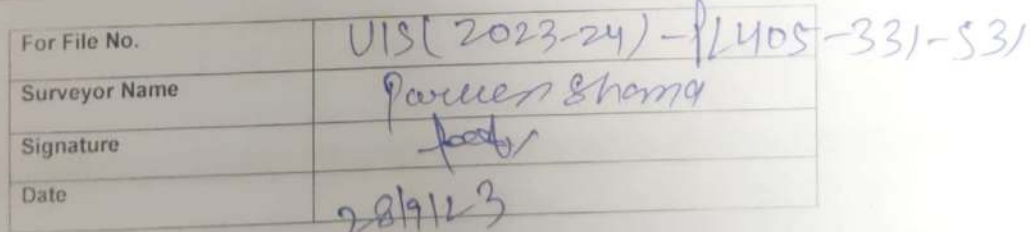 For File No. UIS(2023-24)-PL405-331-531
Surveyor Name Parveen Sharma
Signature
Date 28/9/23